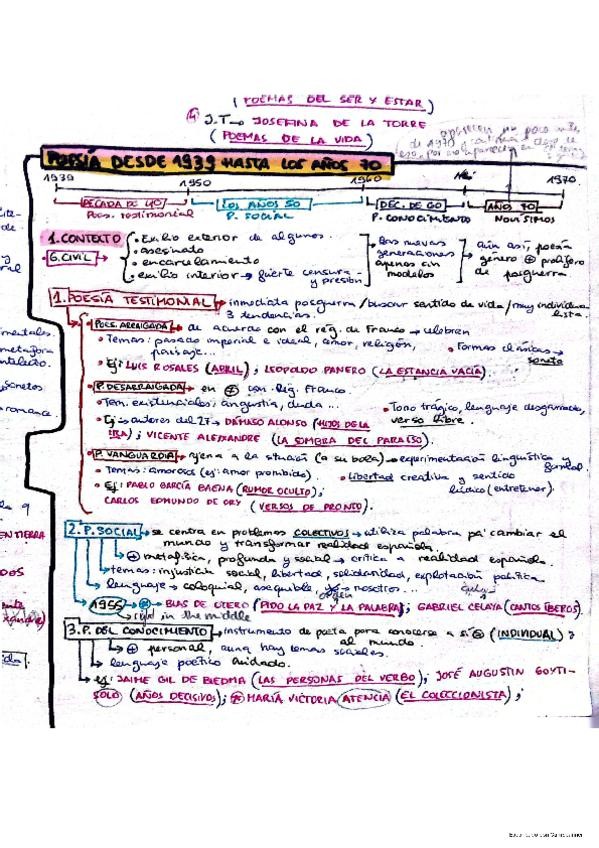 (POEMAS DEL SER Y ESTAR)
④ J.T → JOSEFINA DE LA TORRE
(POEMAS DE LA VIDA)
POESÍA DESDE 1939 HASTA LOS AÑOS 70
1939 1950 1960 1970
DÉCADA DE 40 LOS AÑOS 50 DÉC. DE 60 AÑOS 70
Poes. testimonial P. SOCIAL P. CONOCIMIENTO NOVÍSIMOS
1. CONTEXTO • Exilio exterior de algunos. Bas nuevas aún así, poesía
G. CIVIL • asesinado generaciones género ⊕ prolífero
• encarcelamiento apenas sin de posguerra
• exilio interior → fuerte censura modelos
y presión
1. POESÍA TESTIMONIAL → inmediata posguerra / buscar sentido de vida / muy individua
3 tendencias lista.
• POES. ARRAIGADA → de acuerdo con el rég. de Franco → celebren
• Temas: pasado imperial e ideal, amor, religión, • Formas clásicas →
paisaje... soneto
• Ej: LUIS ROSALES (ABRIL); LEOPOLDO PANERO (LA ESTANCIA VACÍA).
• P. DESARRAIGADA → en con. reg. Franco.
• Tem. existenciales: angustia, duda... • Tono trágico, lenguaje desgarrado,
verso libre.
• Ej: autores del 27 → DÁMASO ALONSO (HIJOS DE LA
IRA); VICENTE ALEIXANDRE (LA SOMBRA DEL PARAÍSO).
• P. VANGUARDIA → ajena a la situación (a su bola) → experimentación lingüística y
formal.
• Temas: amorosa (ej: amor prohibido). • Libertad creativa y sentido
lúdico (entretener).
• Ej: PABLO GARCÍA BAENA (RUMOR OCULTO);
CARLOS EDMUNDO DE ORY (VERSOS DE PRONTO).
2. P. SOCIAL → se centra en problemas COLECTIVOS → utiliza palabra pa' cambiar el
mundo y transformar realidad española.
⊕ metafísica, profunda y social → crítica a realidad española.
temas: injusticia social, libertad, solidaridad, explotación política.
lenguaje → coloquial, asequible, nosotros...
1955 → BLAS DE OTERO (PIDO LA PAZ Y LA PALABRA); GABRIEL CELAYA (CANTOS ÍBEROS).
right in the middle
3. P. DEL CONOCIMIENTO → instrumento de poeta para conocerse a sí (INDIVIDUAL) y
al mundo.
⊕ personal, aunq hay temas sociales.
lenguaje poético cuidado.
ej: JAIME GIL DE BIEDMA (LAS PERSONAS DEL VERBO); JOSÉ AUGUSTIN GOYTI-
SOLO (AÑOS DECISIVOS); MARÍA VICTORIA ATENCIA (EL COLECCIONISTA);